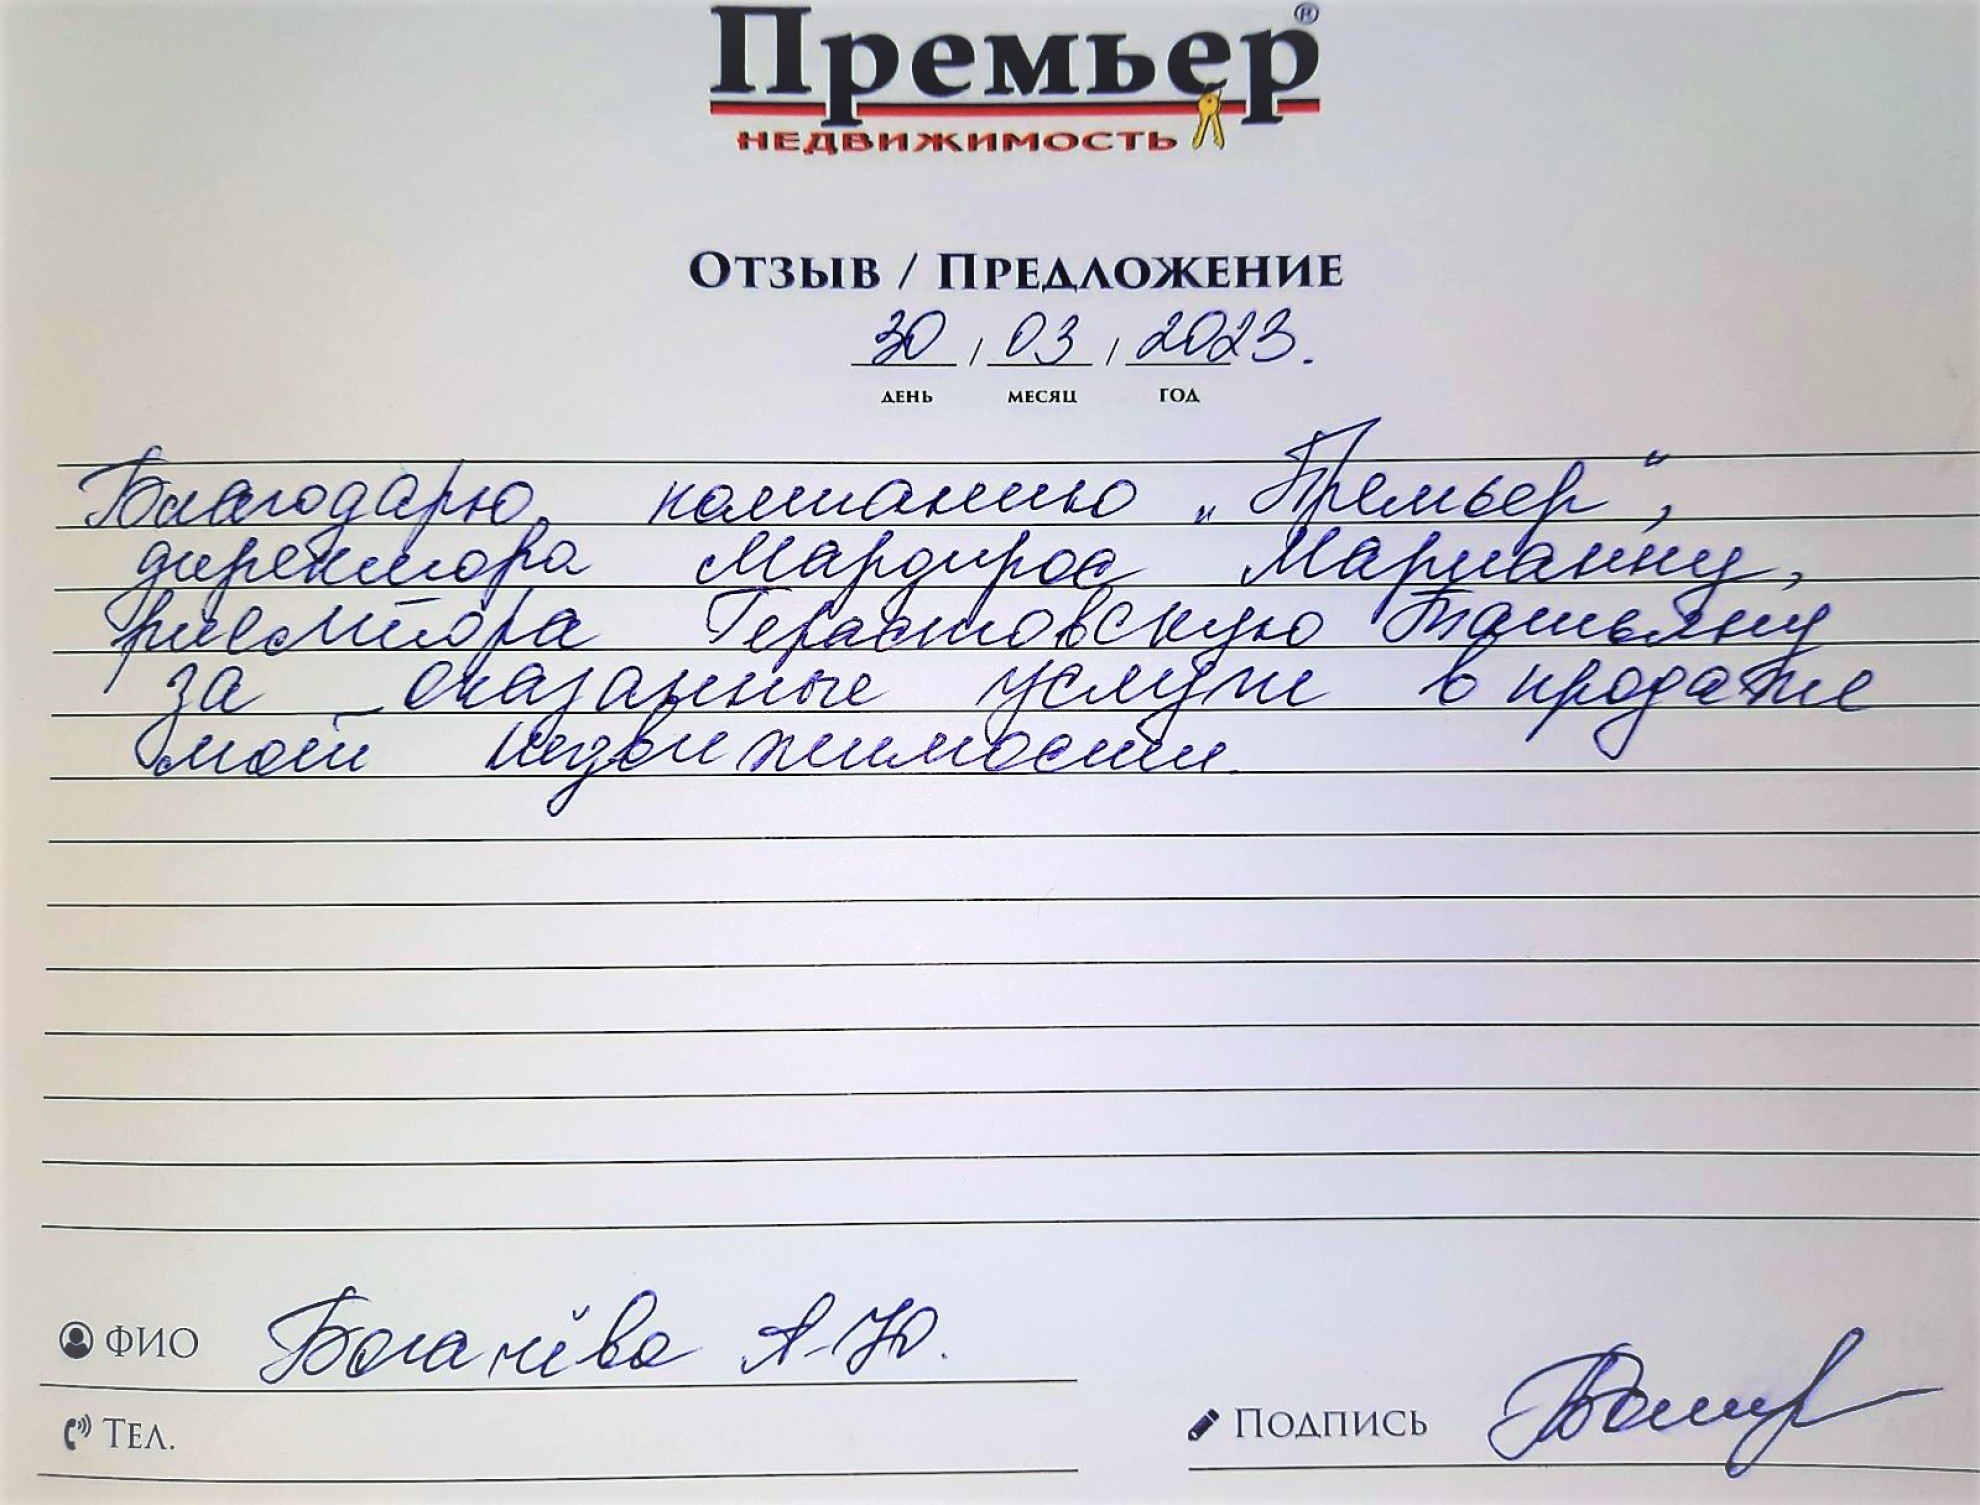 Премьер®
НЕДВИЖИМОСТЬ
ОТЗЫВ / ПРЕДЛОЖЕНИЕ
30 / 03 / 2023.
ДЕНЬ МЕСЯЦ ГОД
Благодарю компанию „Премьер“,
директора Мардирос Марианну,
риелтора Терастовскую Татьяну
за оказанные услуги в продаже
моей недвижимости.
ФИО Богачёва А.Ю.
ТЕЛ.
ПОДПИСЬ